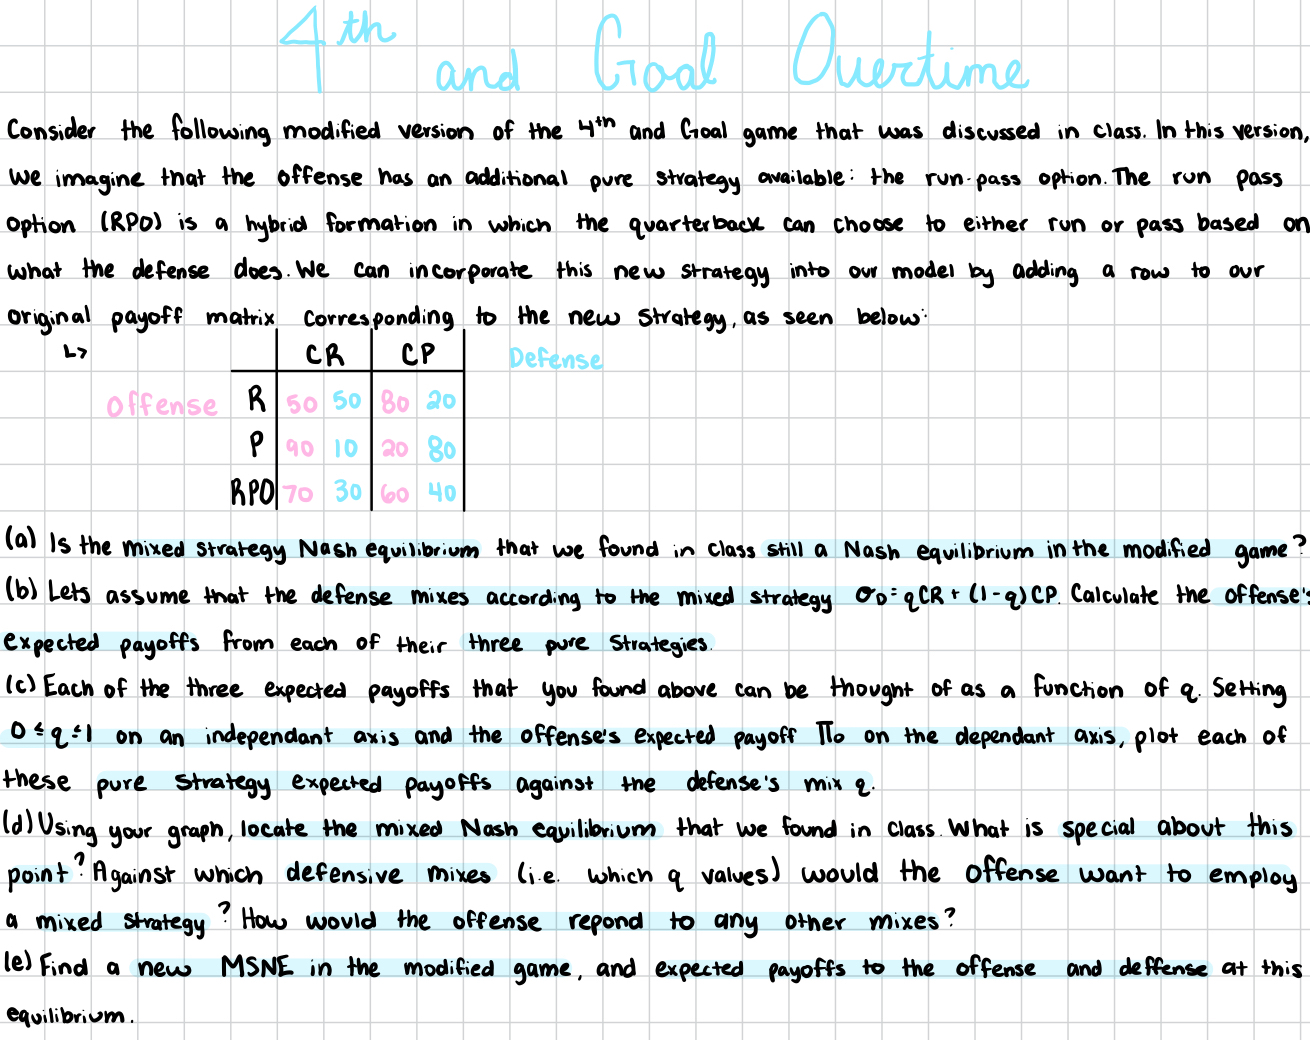 4th and Goal Overtime
Consider the following modified version of the 4th and Goal game that was discussed in class. In this version,
we imagine that the offense has an additional pure strategy available: the run-pass option. The run pass
option (RPO) is a hybrid formation in which the quarterback can choose to either run or pass based on
what the defense does. We can incorporate this new strategy into our model by adding a row to our
original payoff matrix corresponding to the new strategy, as seen below:
↳
CR CP Defense
Offense R 50 50 80 20
P 90 10 20 80
RPO 70 30 60 40
(a) Is the mixed strategy Nash equilibrium that we found in class still a Nash equilibrium in the modified game?
(b) Lets assume that the defense mixes according to the mixed strategy σD = qCR + (1-q)CP. Calculate the offense's
expected payoffs from each of their three pure strategies.
(c) Each of the three expected payoffs that you found above can be thought of as a function of q. Setting
0 ≤ q ≤ 1 on an independant axis and the offense's expected payoff Πo on the dependant axis, plot each of
these pure strategy expected payoffs against the defense's mix q.
(d) Using your graph, locate the mixed Nash equilibrium that we found in class. What is special about this
point? Against which defensive mixes (i.e. which q values) would the offense want to employ
a mixed strategy? How would the offense repond to any other mixes?
(e) Find a new MSNE in the modified game, and expected payoffs to the offense and deffense at this
equilibrium.